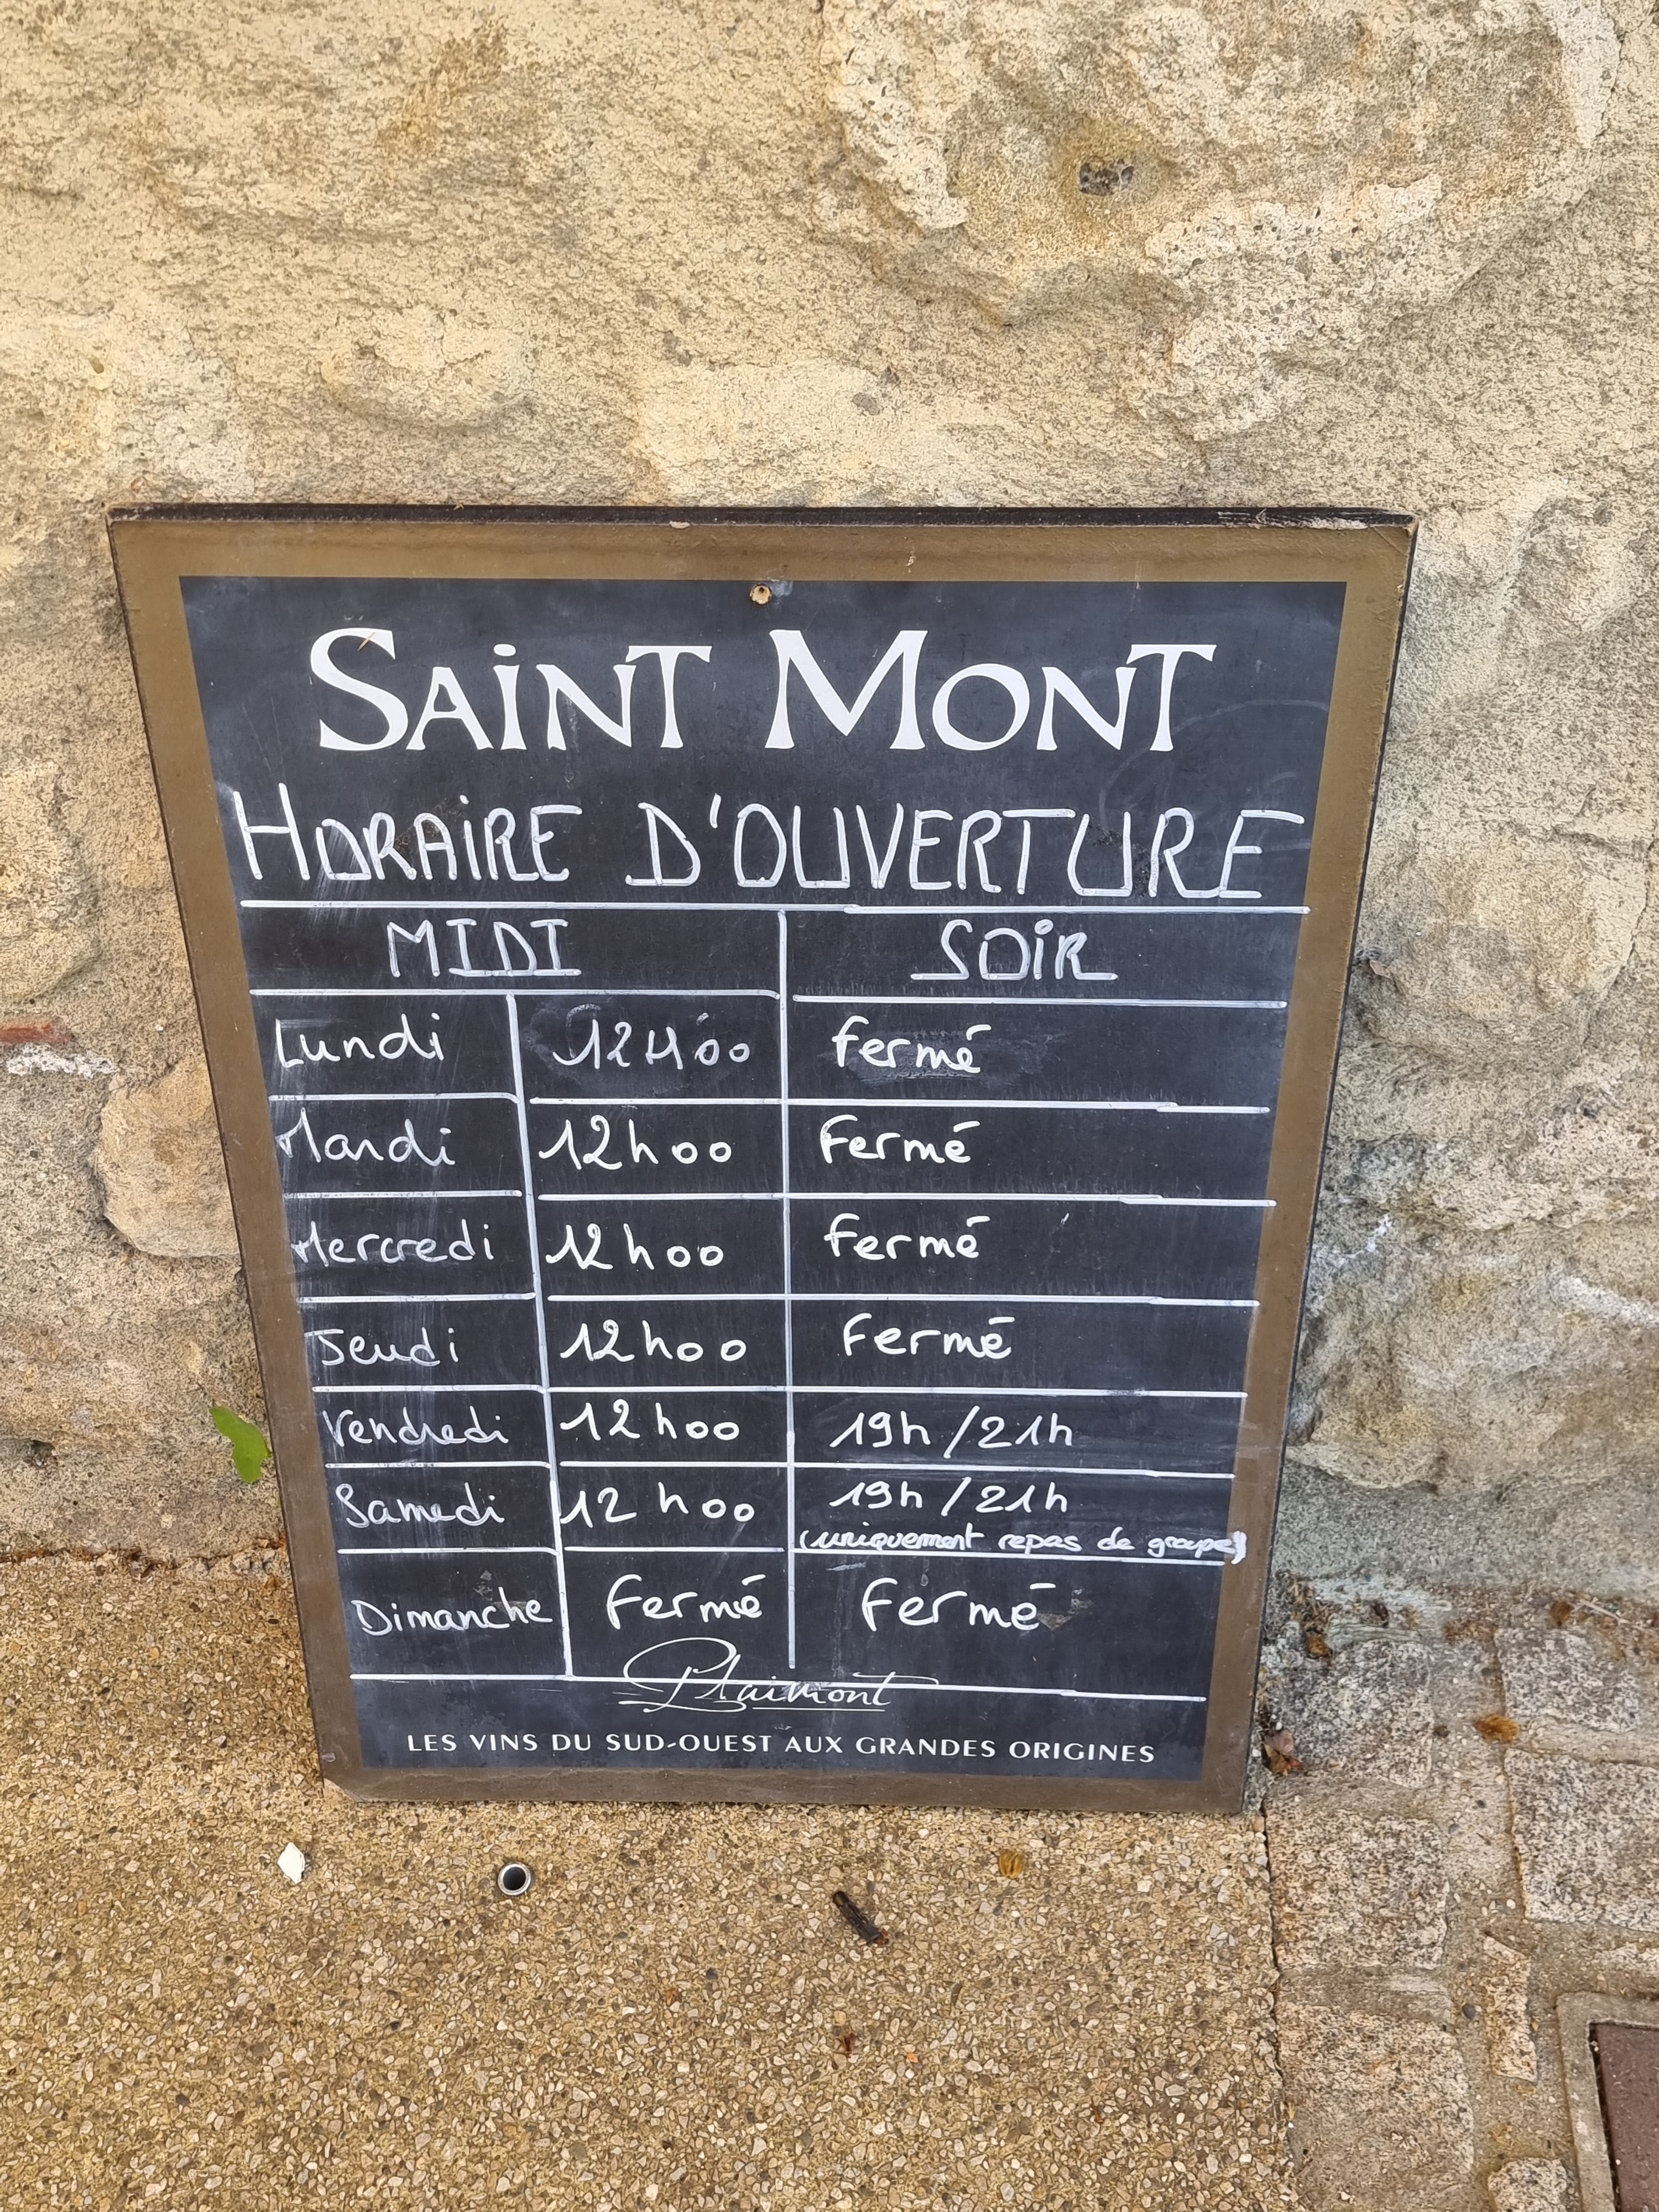 SAiNT MONT
HORAiRE D'OUVERTURE
MIDI SOiR
Lundi 12H00 fermé
Mardi 12h00 Fermé
Mercredi 12h00 fermé
Jeudi 12h00 Fermé
Vendredi 12h00 19h/21h
Samedi 12h00 19h/21h
(uniquement repas de groupe)
Dimanche Fermé Fermé
Plaimont
LES VINS DU SUD-OUEST AUX GRANDES ORIGINES